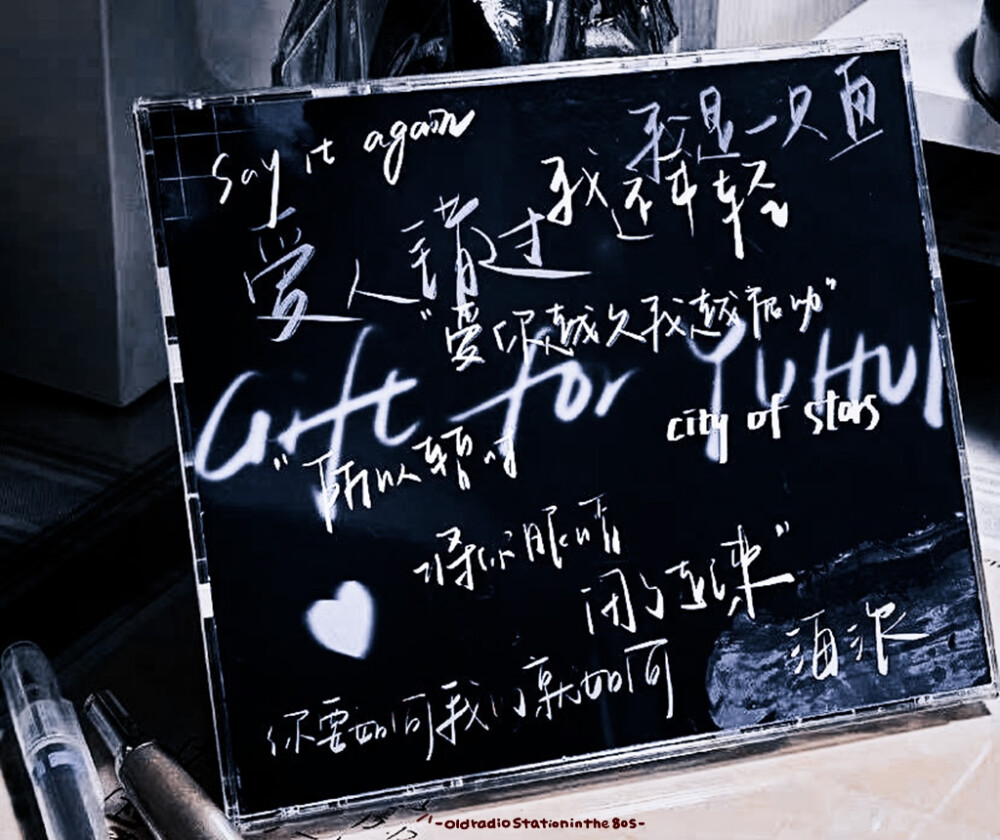 Say it again
我是一只鱼
我还年轻
爱人错过
"爱你越久我越被动"
Gift for YuHui
city of stars
"所以暂时
将你眼睛
闭了起来"
海浪
你要如何我们就如何
-OldradioStationinthe80s-